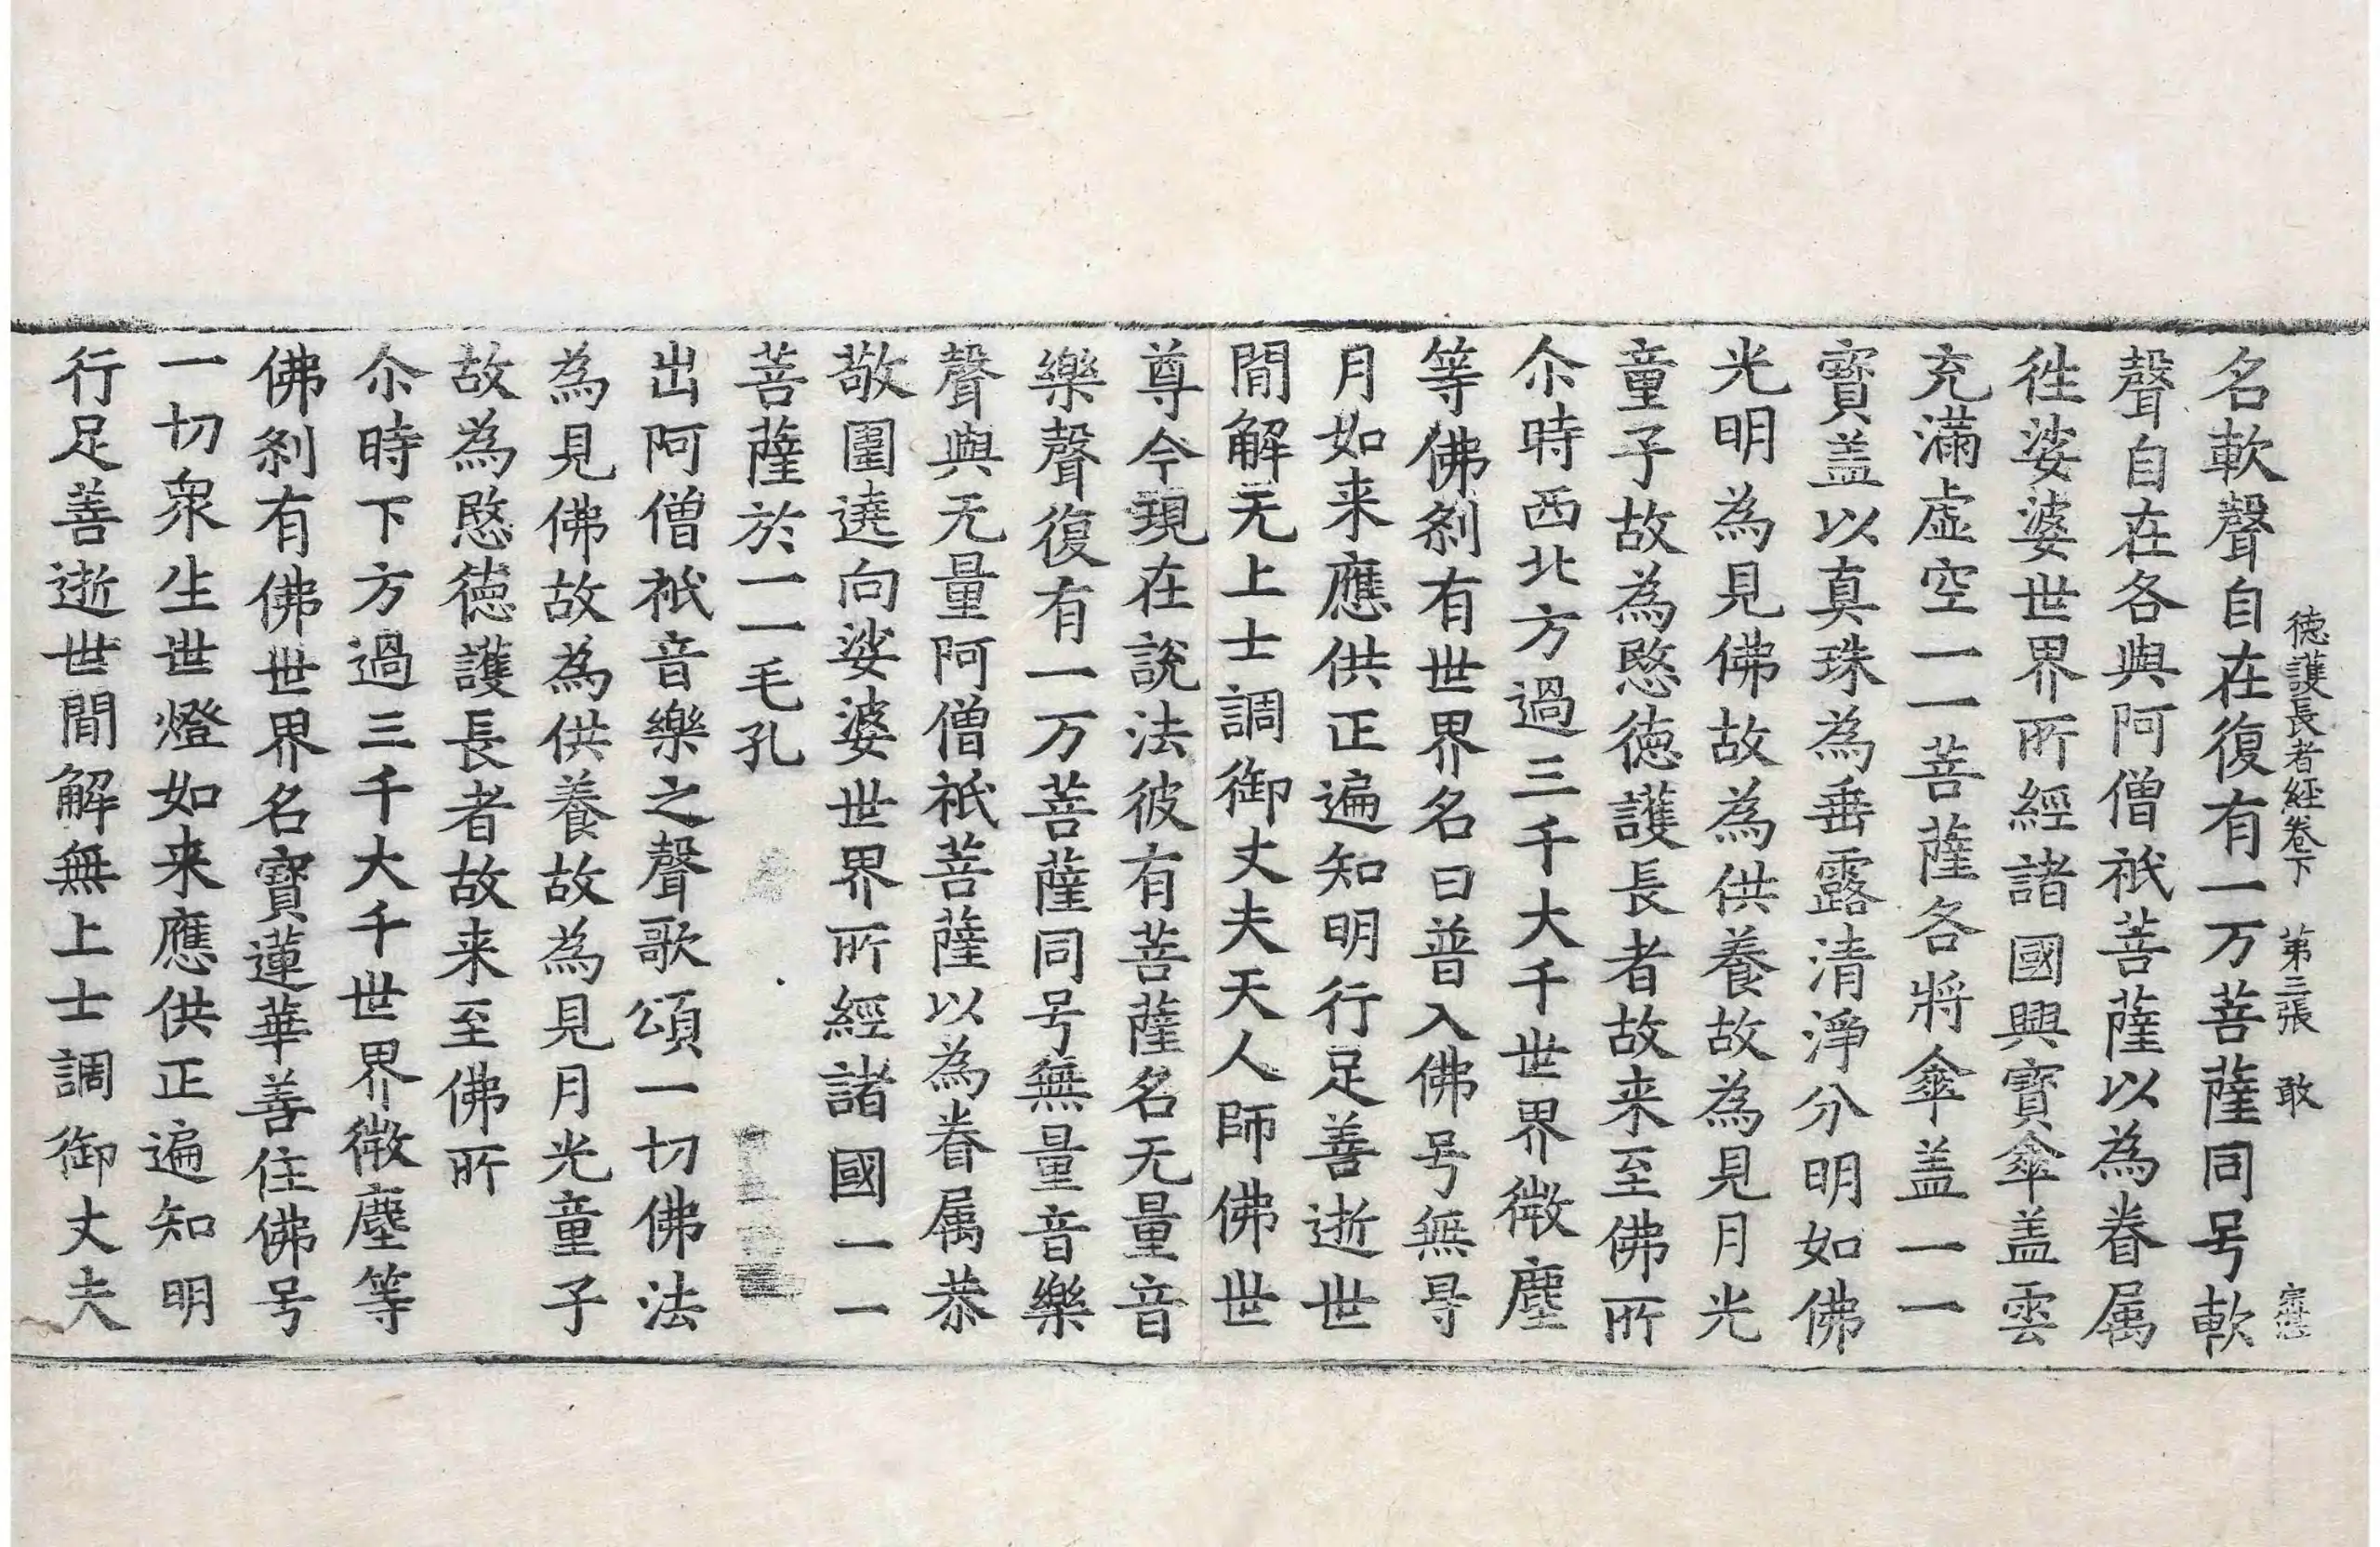 德護長者經卷下　第三張　敢
名軟聲自在復有一万菩薩同号軟
聲自在各與阿僧祇菩薩以為眷属
徃娑婆世界所經諸國興寶傘盖雲
充滿虛空一一菩薩各將傘盖一一
寳盖以真珠為垂露清淨分明如佛
光明為見佛故為供養故為見月光
童子故為愍德護長者故来至佛所
尒時西北方過三千大千世界微塵
等佛刹有世界名曰普入佛号無㝵
月如来應供正遍知明行足善逝世
間解无上士調御丈夫天人師佛世
尊今現在說法彼有菩薩名无量音
樂聲復有一万菩薩同号無量音樂
聲與无量阿僧祇菩薩以為眷属恭
敬圍遶向娑婆世界所經諸國一一
菩薩於一一毛孔
出阿僧祇音樂之聲歌頌一切佛法
為見佛故為供養故為見月光童子
故為愍德護長者故来至佛所
尒時下方過三千大千世界微塵等
佛刹有佛世界名寳蓮華善住佛号
一切衆生世燈如来應供正遍知明
行足善逝世間解無上士調御丈夫